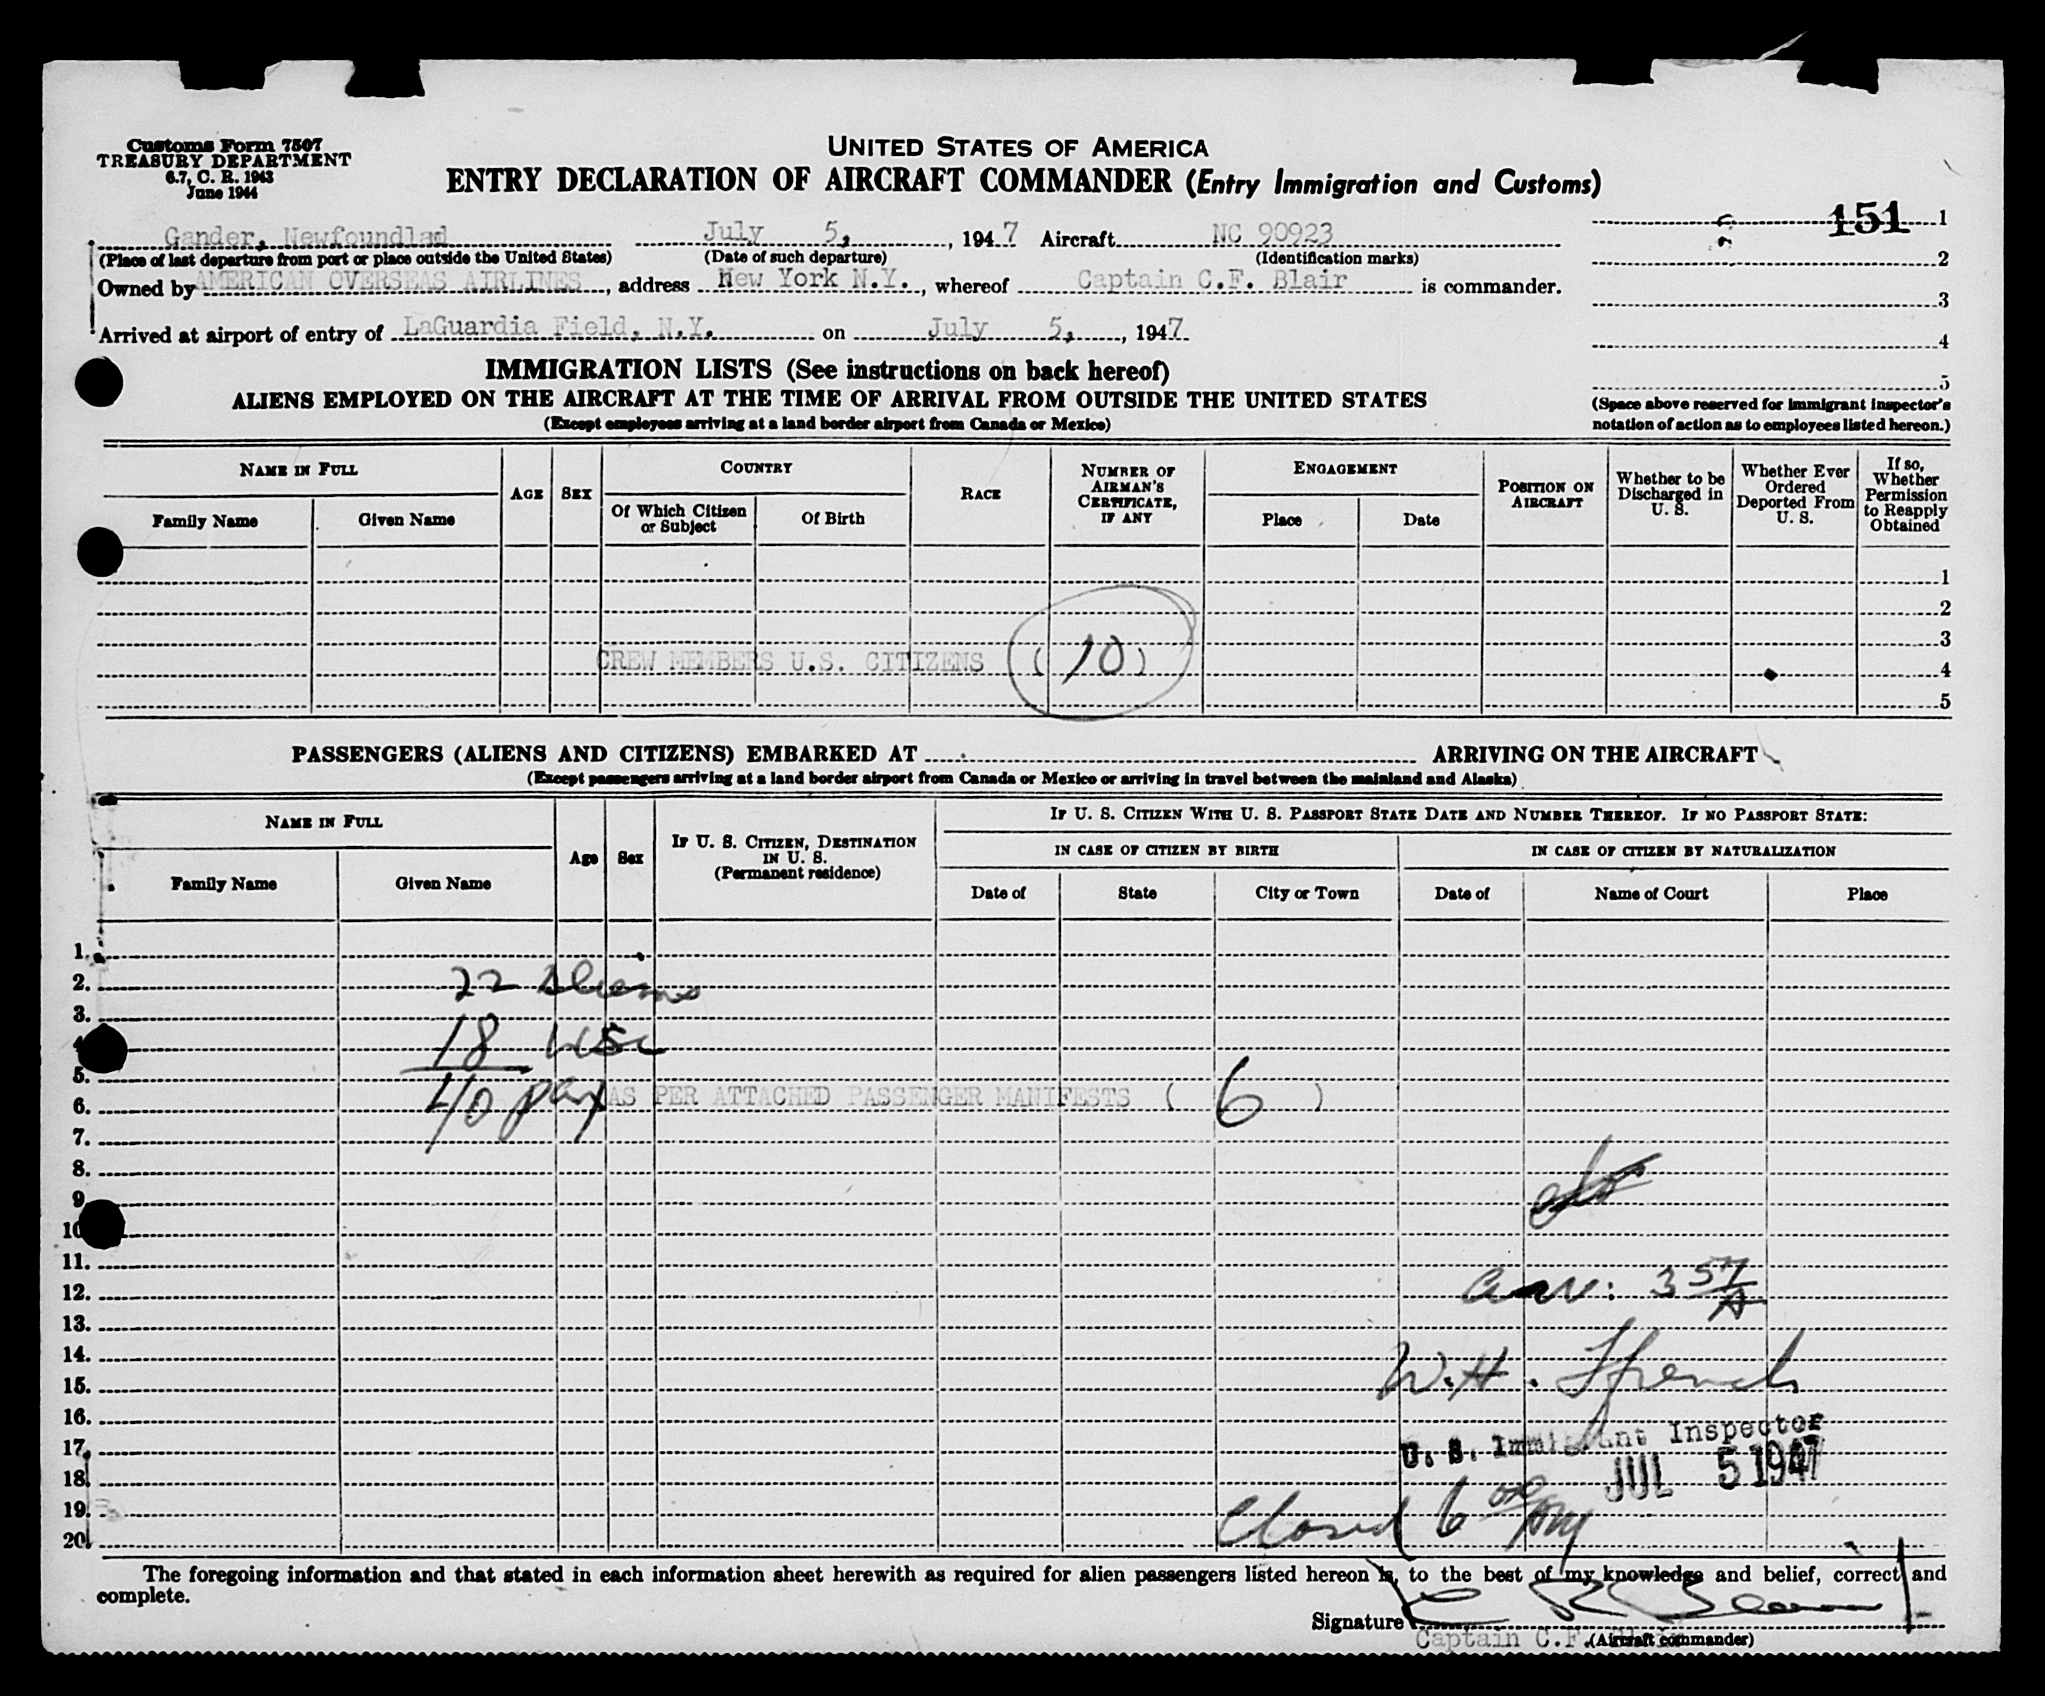 Customs Form 7507
TREASURY DEPARTMENT
6.7, C. R. 1943
June 1944
UNITED STATES OF AMERICA
ENTRY DECLARATION OF AIRCRAFT COMMANDER (Entry Immigration and Customs)
151 1
2
3
4
5
(Space above reserved for immigrant inspector's
notation of action as to employees listed hereon.)
Gander, Newfoundlad July 5, , 1947 Aircraft NC 90923
(Place of last departure from port or place outside the United States) (Date of such departure) (Identification marks)
Owned by AMERICAN OVERSEAS AIRLINES, address New York N.Y., whereof Captain C.F. Blair is commander.
Arrived at airport of entry of LaGuardia Field, N.Y. on July 5, , 1947
IMMIGRATION LISTS (See instructions on back hereof)
ALIENS EMPLOYED ON THE AIRCRAFT AT THE TIME OF ARRIVAL FROM OUTSIDE THE UNITED STATES
(Except employees arriving at a land border airport from Canada or Mexico)
NAME IN FULL
Family Name Given Name
AGE
SEX
COUNTRY
Of Which Citizen
or Subject
Of Birth
RACE
NUMBER OF
AIRMAN'S
CERTIFICATE,
IF ANY
ENGAGEMENT
Place Date
POSITION ON
AIRCRAFT
Whether to be
Discharged in
U. S.
Whether Ever
Ordered
Deported From
U. S.
If so,
Whether
Permission
to Reapply
Obtained
1
2
3
CREW MEMBERS U.S. CITIZENS ( 10 ) 4
5
PASSENGERS (ALIENS AND CITIZENS) EMBARKED AT ARRIVING ON THE AIRCRAFT
(Except passengers arriving at a land border airport from Canada or Mexico or arriving in travel between the mainland and Alaska)
NAME IN FULL
Family Name Given Name
Age
Sex
IF U. S. CITIZEN, DESTINATION
IN U. S.
(Permanent residence)
IF U. S. CITIZEN WITH U. S. PASSPORT STATE DATE AND NUMBER THEREOF. IF NO PASSPORT STATE:
IN CASE OF CITIZEN BY BIRTH IN CASE OF CITIZEN BY NATURALIZATION
Date of State City or Town Date of Name of Court Place
1.
2. 22 Aliens
3.
4. 18 USC
5.
6. 40 pax AS PER ATTACHED PASSENGER MANIFESTS ( 6 )
7.
8.
9.
10.
11.
12. arr: 3 57/A
13.
14.
15. W.H. French
16.
17. U. S. Immigrant Inspector
18. JUL 5 1947
19. Closed 6 00
20.
The foregoing information and that stated in each information sheet herewith as required for alien passengers listed hereon is, to the best of my knowledge and belief, correct and
complete.
Signature C F Blair
Captain C.F. (Aircraft commander)